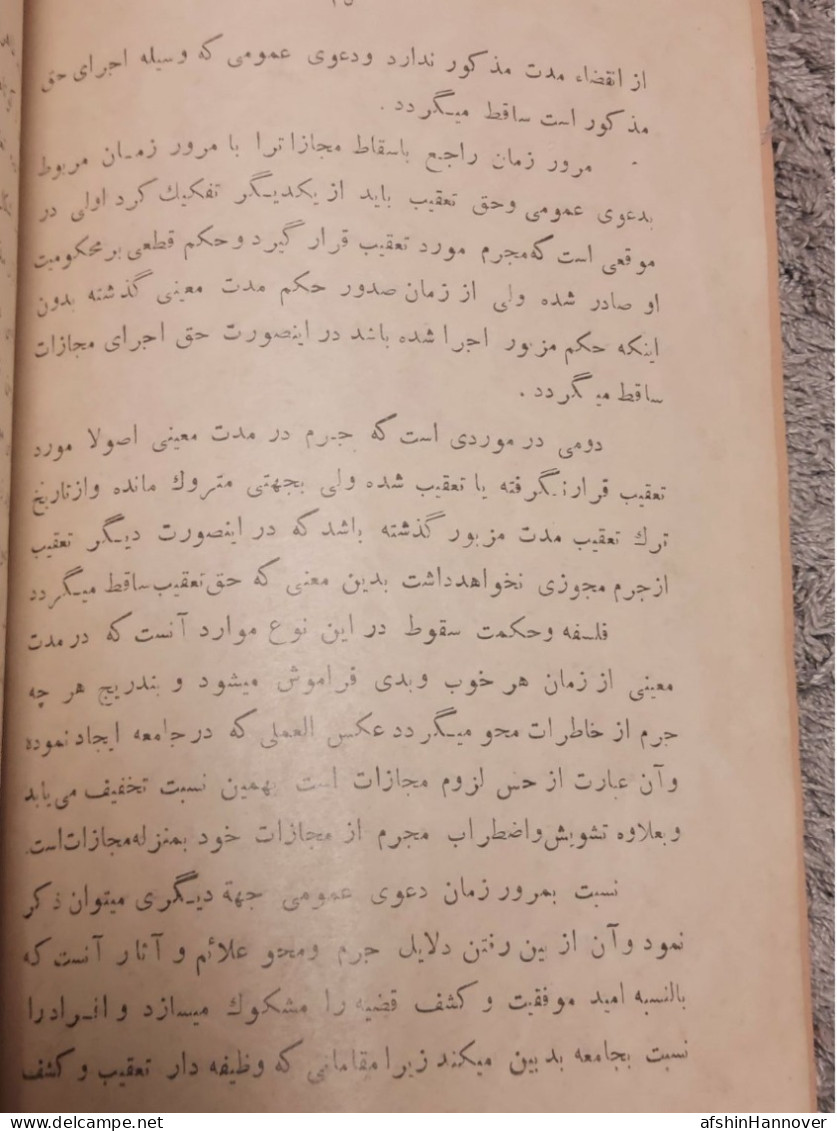 از انقضاء مدت مذکور ندارد ودعوی عمومی که وسیله اجرای حق
مذکور است ساقط میگردد .
مرور زمان راجع باسقاط مجازاترا با مرور زمان مربوط
بدعوی عمومی وحق تعقیب باید از یکدیگر تفکیك کرد اولی در
موقعی است که مجرم مورد تعقیب قرار گیرد و حکم قطعی بر محکومیت
او صادر شده ولی از زمان صدور حکم مدت معینی گذشته بدون
اینکه حکم مزبور اجرا شده باشد در اینصورت حق اجرای مجازات
ساقط میگردد .
دومی در موردی است که جرم در مدت معینی اصولا مورد
تعقیب قرار نگرفته یا تعقیب شده ولی بجهتی متروك مانده واز تاریخ
ترك تعقیب مدت مزبور گذشته باشد که در اینصورت دیگر تعقیب
از جرم مجوزی نخواهد داشت بدین معنی که حق تعقیب ساقط میگردد
فلسفه وحکمت سقوط در این نوع موارد آنست که در مدت
معینی از زمان هر خوب وبدی فراموش میشود و بتدریج هر چه
جرم از خاطرات محو میگردد عکس العملی که در جامعه ایجاد نموده
وآن عبارت از حس لزوم مجازات است بهمین نسبت تخفیف می یابد
وبعلاوه تشویش واضطراب مجرم از مجازات خود بمنزله مجازات است
نسبت بمرور زمان دعوی عمومی جهة دیگری میتوان ذکر
نمود وآن از بین رفتن دلایل جرم ومحو علائم و آثار آنست که
بالنسبه امید موفقیت و کشف قضیه را مشکوك میسازد و افراد را
نسبت بجامعه بدبین میکند زیرا مقاماتی که وظیفه دار تعقیب و کشف
delcampe.net
afshinHannover